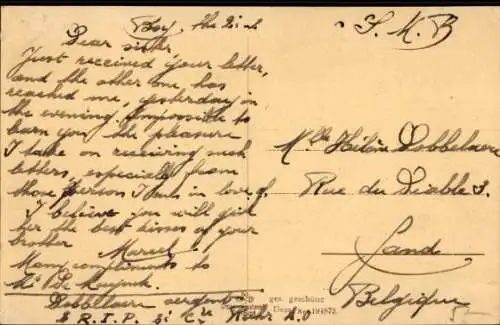 Boy, the 2i
S. M. B
Dear sister,
Just received your letter,
and the other one has
reached me, yesterday in
the evening. Impossible to
learn you the pleasure
I take on receiving such
letters, especially from
those person I am in love of.
I believe you will give
her the best kisses of your
brother Marcel
Many compliments to
Dobbelaere sergent
3 R. I. P. 2i Cie Ruhr A. O
Mlle Hélène Dobbelaere
Rue du Diable 3.
Gand
Belgique
ges. geschützt